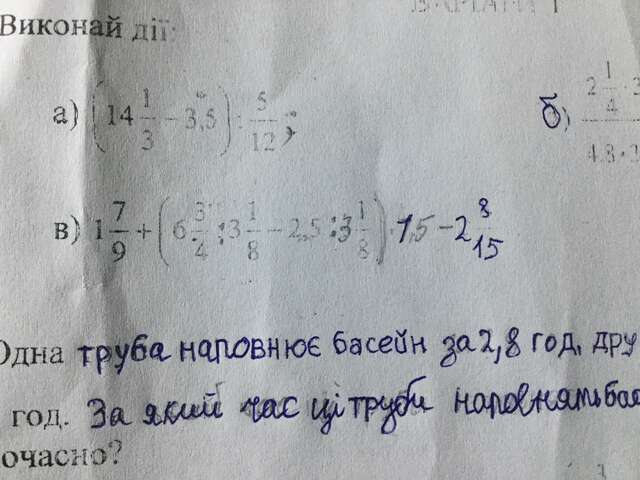 ВАРІАНТ 1
Виконай дії:
а) (14 1/3 − 3,5) : 5/12;
б) 2 1/4 · 3
4,8 ·
в) 1 7/9 + (6 3/4 : 3 1/8 − 2,5 : 3 1/8) · 1,5 − 2 8/15
Одна труба наповнює басейн за 2,8 год, дру
год. За який час ці труби наповнять бас
очасно?